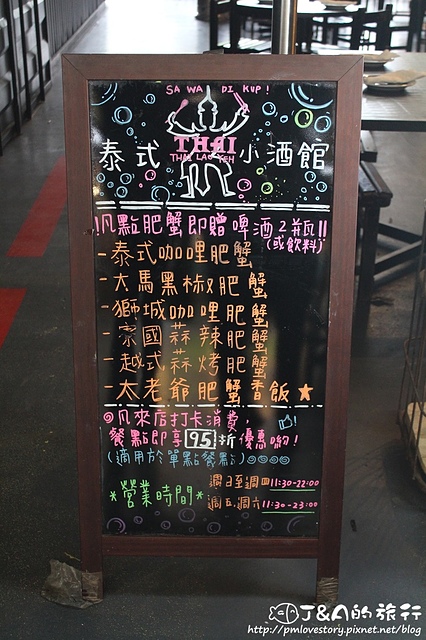 SA WA DI KUP!
泰式 THAI 小酒館
THAI LAO YEH
!!凡點肥蟹即贈啤酒2瓶!!
(或飲料)
-泰式咖哩肥蟹
-大馬黑椒肥蟹
-獅城咖哩肥蟹
-泰國蒜辣肥蟹
-越式蒜烤肥蟹
-太老爺肥蟹香飯★
◎凡來店打卡消費,
餐點即享95折優惠喲!
(適用於單點餐點)
*營業時間*
週日至週四11:30-22:00
週五.週六11:30-23:00
J&A的旅行
http://pmlovestory.pixnet.net/blog